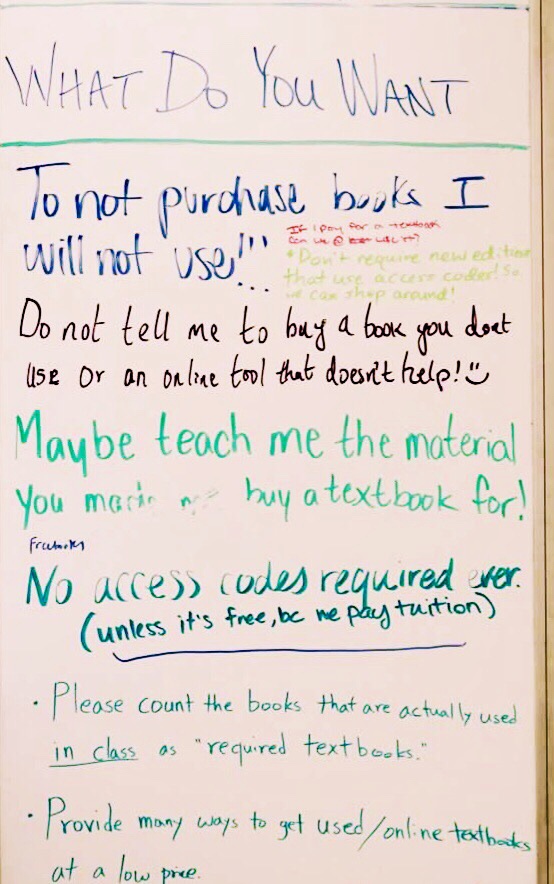 WHAT DO YOU WANT
To not purchase books I
will not use!!!...
If I pay for a textbook
can we @ least use it?
*Don't require new editions
that use access codes! So
we can shop around!
Do not tell me to buy a book you dont
use or an online tool that doesn't help!
Maybe teach me the material
you me buy a textbook for!
No access codes required ever.
(unless it's free, bc we pay tuition)
· Please count the books that are actually used
in class as "required textbooks."
· Provide many ways to get used/online textbooks
at a low price.